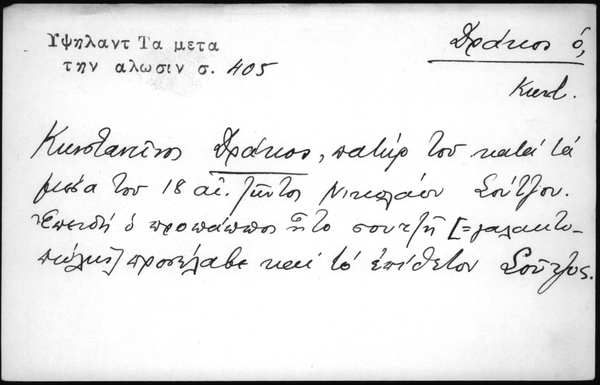 Υψηλαντ Τα μετα
την αλωσιν σ. 405
Δράκος ὁ,
Κωνσ.
Κωνσταντῖνος Δράκος, πατὴρ τοῦ κατὰ τὰ
μέσα τοῦ 18 αἰ. ζῶντος Νικολάου Σούτζου.
Ἐπειδὴ ὁ προπάππος ἦτο σουτζῆ [=γαλακτο-
πώλης] προσέλαβε καὶ τὸ ἐπίθετον Σοῦτζος.